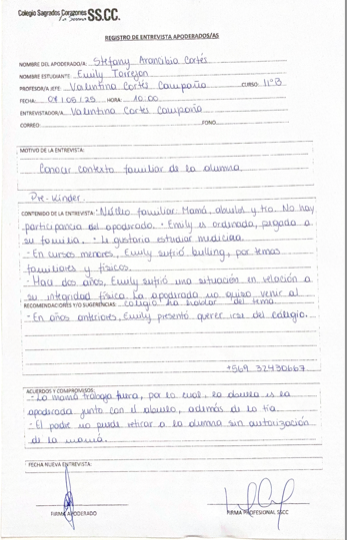 Colegio Sagrados Corazones SS.CC.
La Serena
REGISTRO DE ENTREVISTA APODERADOS/AS
NOMBRE DEL APODERADO/A: Stefany Arancibia Cortés
NOMBRE ESTUDIANTE: Emily Torrejon
PROFESOR/A JEFE: Valentina Cortes Campaña CURSO: IIºB
FECHA: 09/06/25 HORA: 10:00
ENTREVISTADOR/A: Valentina Cortes Campaña
CORREO: FONO:
MOTIVO DE LA ENTREVISTA:
Conocer contexto familiar de la alumna
Pre-Kinder.
CONTENIDO DE LA ENTREVISTA: - Núcleo familiar: Mamá, abuelos y tío. No hay
participación del apoderado. - Emily es ordenada, pegada a
su familia. - Le gustaria estudiar medicina.
- En cursos menores, Emily sufrió bulling, por temas
familiares y físicos.
- Hace dos años, Emily sufrió una situación en relación a
su integridad física. La apoderada no quiso venir al
colegio ha hablar del tema.
RECOMENDACIONES Y/O SUGERENCIAS
- En años anteriores, Emily presentó querer irse del colegio.
+569 32430667
ACUERDOS Y COMPROMISOS:
- La mamá trabaja fuera, por lo cual, la abuela es la
apoderada junto con el abuelo, además de la tía.
- El padre no puede retirar a la alumna sin autorización
de la mamá.
FECHA NUEVA ENTREVISTA:
FIRMA APODERADO
FIRMA PROFESIONAL SSCC